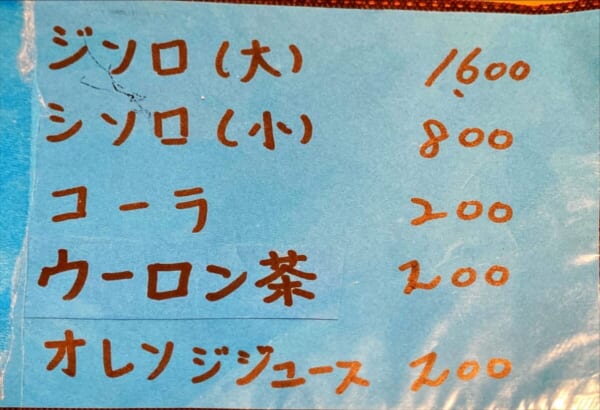 ジンロ(大) 1600
シンロ(小) 800
コーラ 200
ウーロン茶 200
オレンジジュース 200